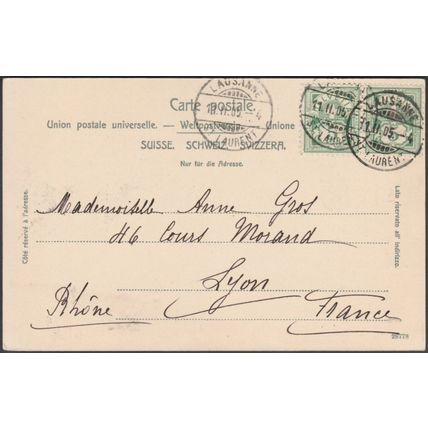 LAUSANNE
11.II.05.–4
(St LAURENT)
LAUSANNE
11.II.05.–4
LAURENT
Carte postale.
Union postale universelle. — Weltpostverein. — Unione
SUISSE. SCHWEIZ. SVIZZERA.
Nur für die Adresse.
Côté réservé à l'adresse.
Lato riservato all' indirizzo.
Mademoiselle Anne Gros
46 Cours Morand
Lyon
Rhône France